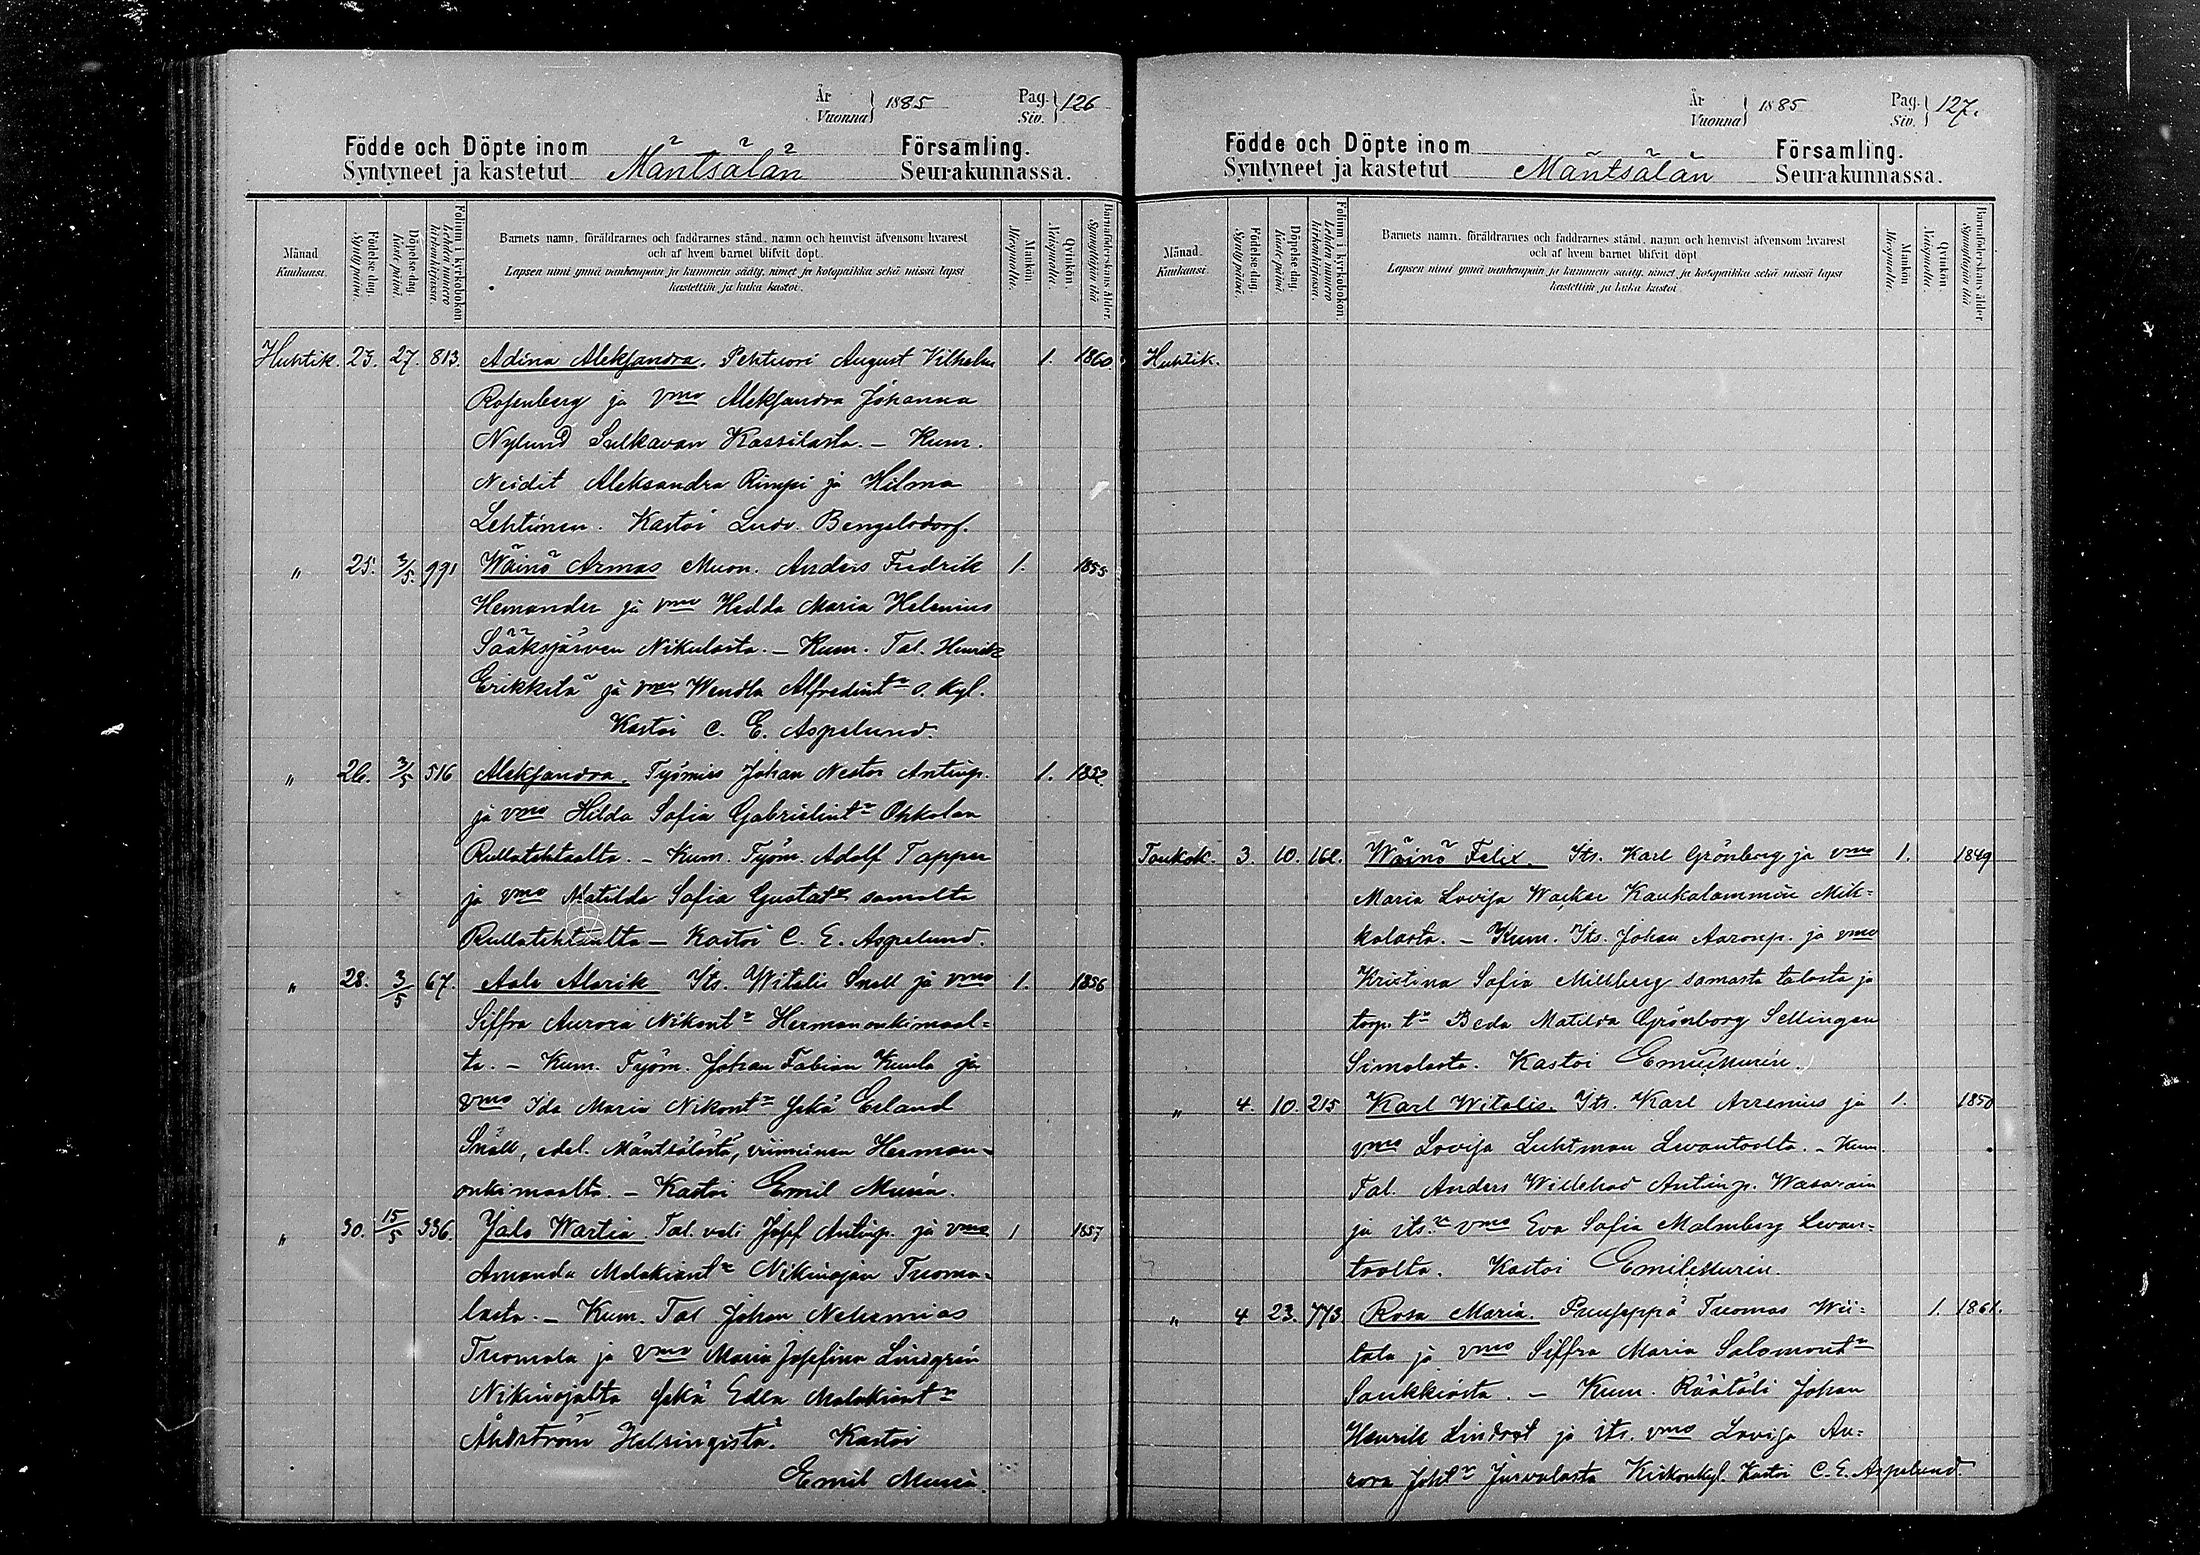 År Vuonna } 1885 Pag. Siv. } 126
Födde och Döpte inom Församling.
Syntyneet ja kastetut Mäntsälän Seurakunnassa.
Månad Kuukausi.
Födelse dag. Synty päivä.
Döpelse-dag. Kaste päivä.
Folium i kyrkoboken. Lehden numero kirkonkirjassa.
Barnets namn, föräldrarnes och faddrarnes stånd, namn och hemvist äfvensom hvarest
och af hvem barnet blifvit döpt.
Lapsen nimi ynnä vanhempain ja kummein sääty, nimet ja kotopaikka sekä missä lapsi
kastettiin ja kuka kastoi.
Mankön. Miespuolta.
Qvinkön. Naispuolta.
Barnaföderskans ålder. Synnyttäjän ikä
Huhtik. 23. 27. 813. Adina Aleksandra. Pehtuori August Vilhelm 1. 1860.
Rosenberg ja vmo Aleksandra Johanna
Nylund Sulkavan Kassilasta. – Kum.
Neidit Aleksandra Rimpi ja Hilma
Lehtinen. Kastoi Ludv. Bengelsdorf.
" 25. 3/5. 991 Wäinö Armas Muon. Anders Fredrik 1. 1855
Hemander ja vmo Hedda Maria Helenius
Sääksjärven Nikulasta. – Kum. Tal. Henrik
Erikkilä ja vmo Wendla Alfredint:r s. kyl.
Kastoi C. E. Aspelund.
" 26. 3/5 516 Aleksandra. Työmies Johan Nestor Antinp. 1. 1852.
ja vmo Hilda Sofia Gabrielint:r Ohkolan
Rullatehtaalta. – Kum. Työm. Adolf Tapper
ja vmo Matilda Sofia Gustat:r samalta
Rullatehtaalta – Kastoi C. E. Aspelund.
" 28. 3/5 67. Aale Alarik Its. Witalis Snell ja vmo 1. 1856
Siffra Aurora Nikont:r Hermanonkimaal=
ta. – Kum. Työm. Johan Fabian Kunla ja
vmo Ida Maria Nikont:r sekä Erland
Snäll, edel. Mäntsälästä, viimeinen Herman-
onkimaalta. – Kastoi Emil Murén.
" 30. 15/5 336. Jalo Wartia Tal. veli Josef Antinp. ja vmo 1 1857
Amanda Malakiant:r Nikinojan Tuoma-
lasta. – Kum. Tal Johan Nehemias
Tuomala ja vmo Maria Josefina Lindgrén
Nikinojalta sekä Edla Malakiant:r
Åhlström Helsingistä. Kastoi
Emil Murén.
År Vuonna } 1885 Pag. Siv. } 127.
Födde och Döpte inom Församling.
Syntyneet ja kastetut Mäntsälän Seurakunnassa.
Månad. Kuukausi.
Födelse-dag. Synty päivä.
Döpelse-dag. Kaste päivä
Folium i kyrkoboken. Lehden numero kirkonkirjassa.
Barnets namn, föräldrarnes och faddrarnes stånd, namn och hemvist äfvensom hvarest
och af hvem barnet blifvit döpt
Lapsen nimi ynnä vanhempain ja kummein sääty, nimet ja kotopaikka sekä missä lapsi
kastettiin ja kuka kastoi
Mankön. Miespuolta.
Qvinkön. Naispuolta.
Barnaföderskans ålder Synnyttäjän ikä
Huhtik.
Toukok. 3. 10. 162. Wäinö Felix. Its. Karl Grönborg ja vmo 1. 1849
Maria Lovisa Wacker Kaukalammin Mik=
kolasta. – Kum. Its. Johan Aaronp. ja vmo
Kristina Sofia Millberg samasta talosta ja
torp. t:r Beda Matilda Grönborg Sellingen
Simolasta. Kastoi Emil Murén.
" 4. 10. 215 Karl Witalis. Its. Karl Arrenius ja 1. 1850
vmo Lovisa Luhtman Levantoolta. – Kum.
Tal. Anders Willehad Antinp. Wasarain
ja its. vmo Eva Sofia Malmberg Levan=
toolta. Kastoi Emil Murén.
" 4 23. 773 Rosa Maria. Puuseppä Tuomas Wii= 1. 1861.
tala ja vmo Siffra Maria Salomont:r
Saukkiosta. – Kum. Räätäli Johan
Henrik Lindqvst ja its. vmo Lovisa Au=
rora Joht:r Järvalasta Kirkonkyl. Kastoi C. E. Aspelund.